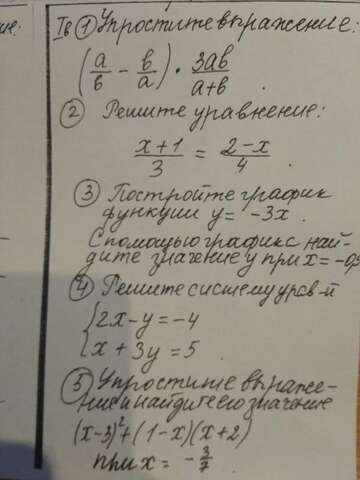 Iв ① Упростите выражение:
(a/в - в/a) · 3aв/a+в.
② Решите уравнение:
x+1/3 = 2-x/4.
③ Постройте график
функции y= -3x.
С помощью графика най-
дите значение y при x=
④ Решите систему урав-й
{2x-y=-4
x+3y=5.
⑤ Упростите выраже-
ние и найдите его значение
(x-3)²+(1-x)(x+2)
при x= -3/7